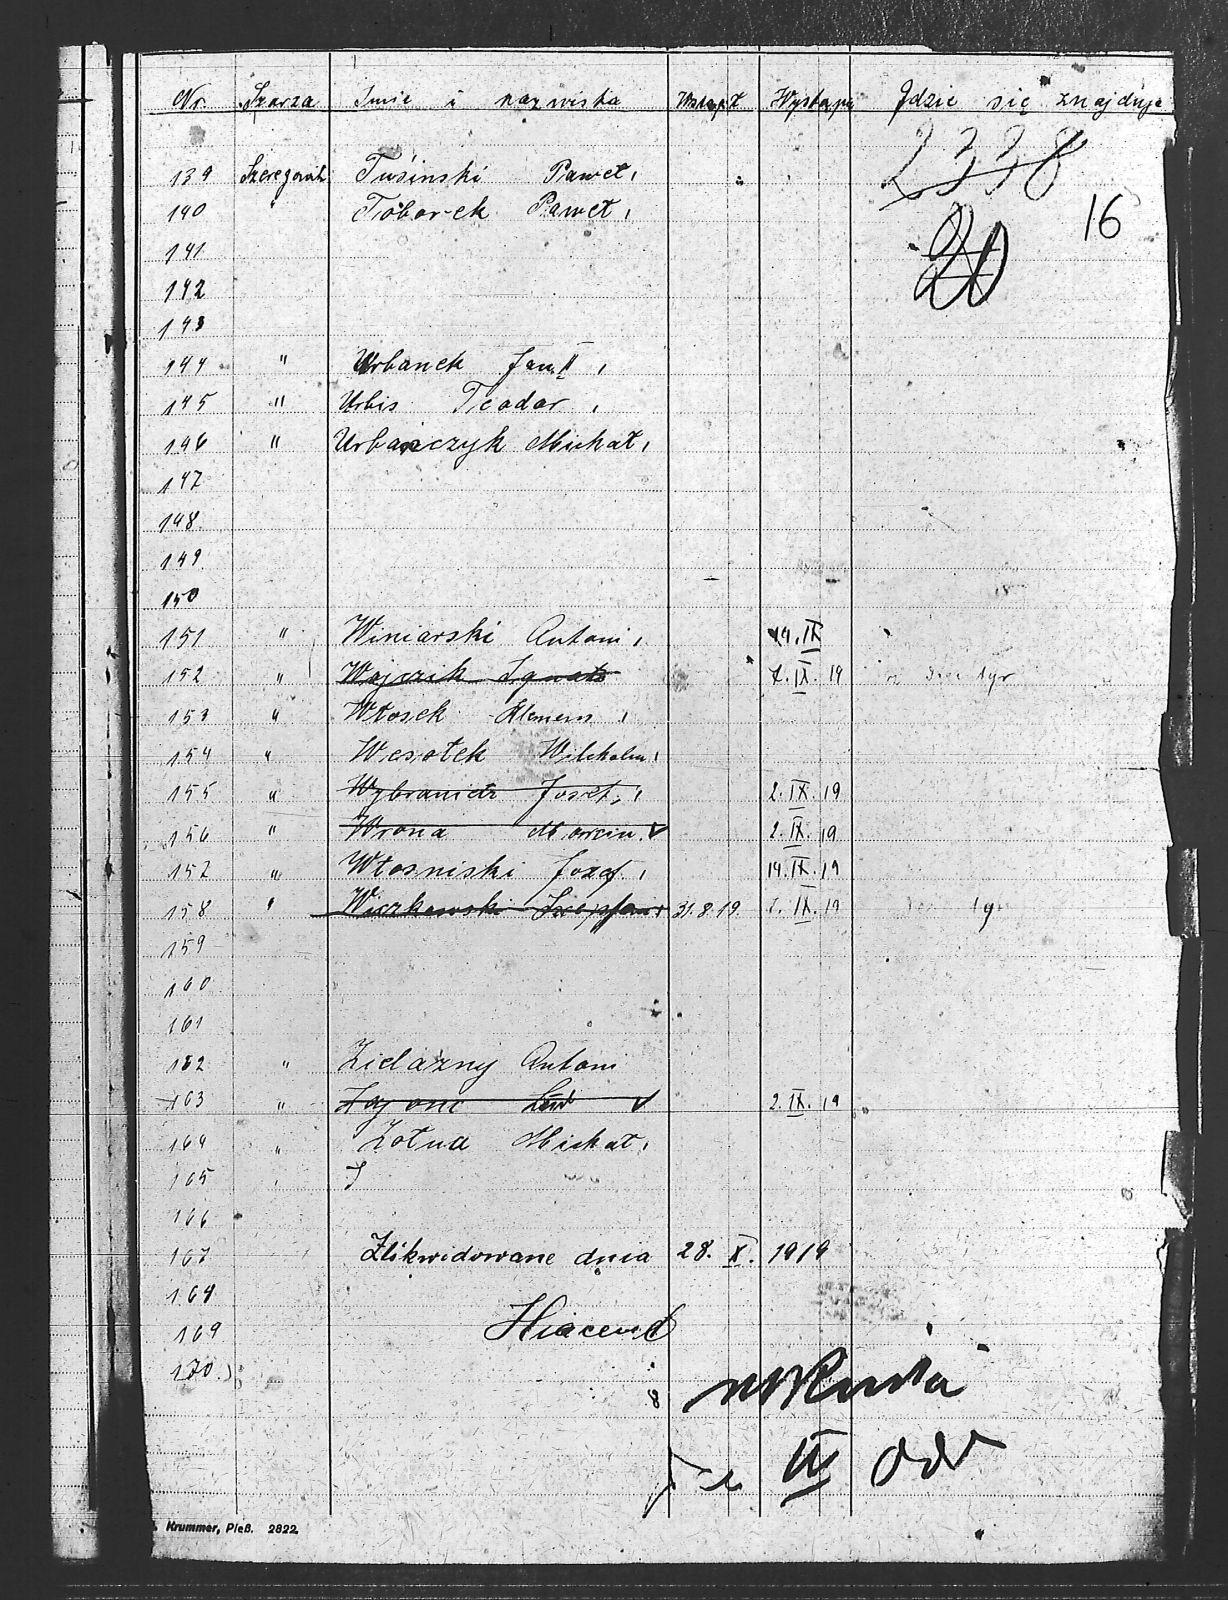 Nr. Szarza Imie i nazwiska Wstąpił Wystąpił Gdzie się znajduje
2338
139 Szeregowiec Tusinski Paweł,
140 " Toborek Paweł,
16
20
141
142
143
144 " Urbanek Jan II,
145 " Urbis Teodor,
146 " Urbańczyk Michał,
147
148
149
150
151 " Winiarski Antoni, 14. IX
152 " Wojczik Ignatz 7. IX. 19
153 " Włosek Klemens,
154 " Wesołek Wilhelm,
155 " Josef, 2. IX. 19
156 " Wrona Marcin V 2. IX. 19
157 " Włosniski Jozef, 14. IX. 19
158 " 31. 8. 19. IX. 19
159
160
161
162 " Zielazny Antoni
163 " V 2. IX. 19
164 " Żołna Michał,
165
166
167 Zlikwidowane dnia 28. X. 1919
168
169
170.
IV
Krummer, Pleß. 2822